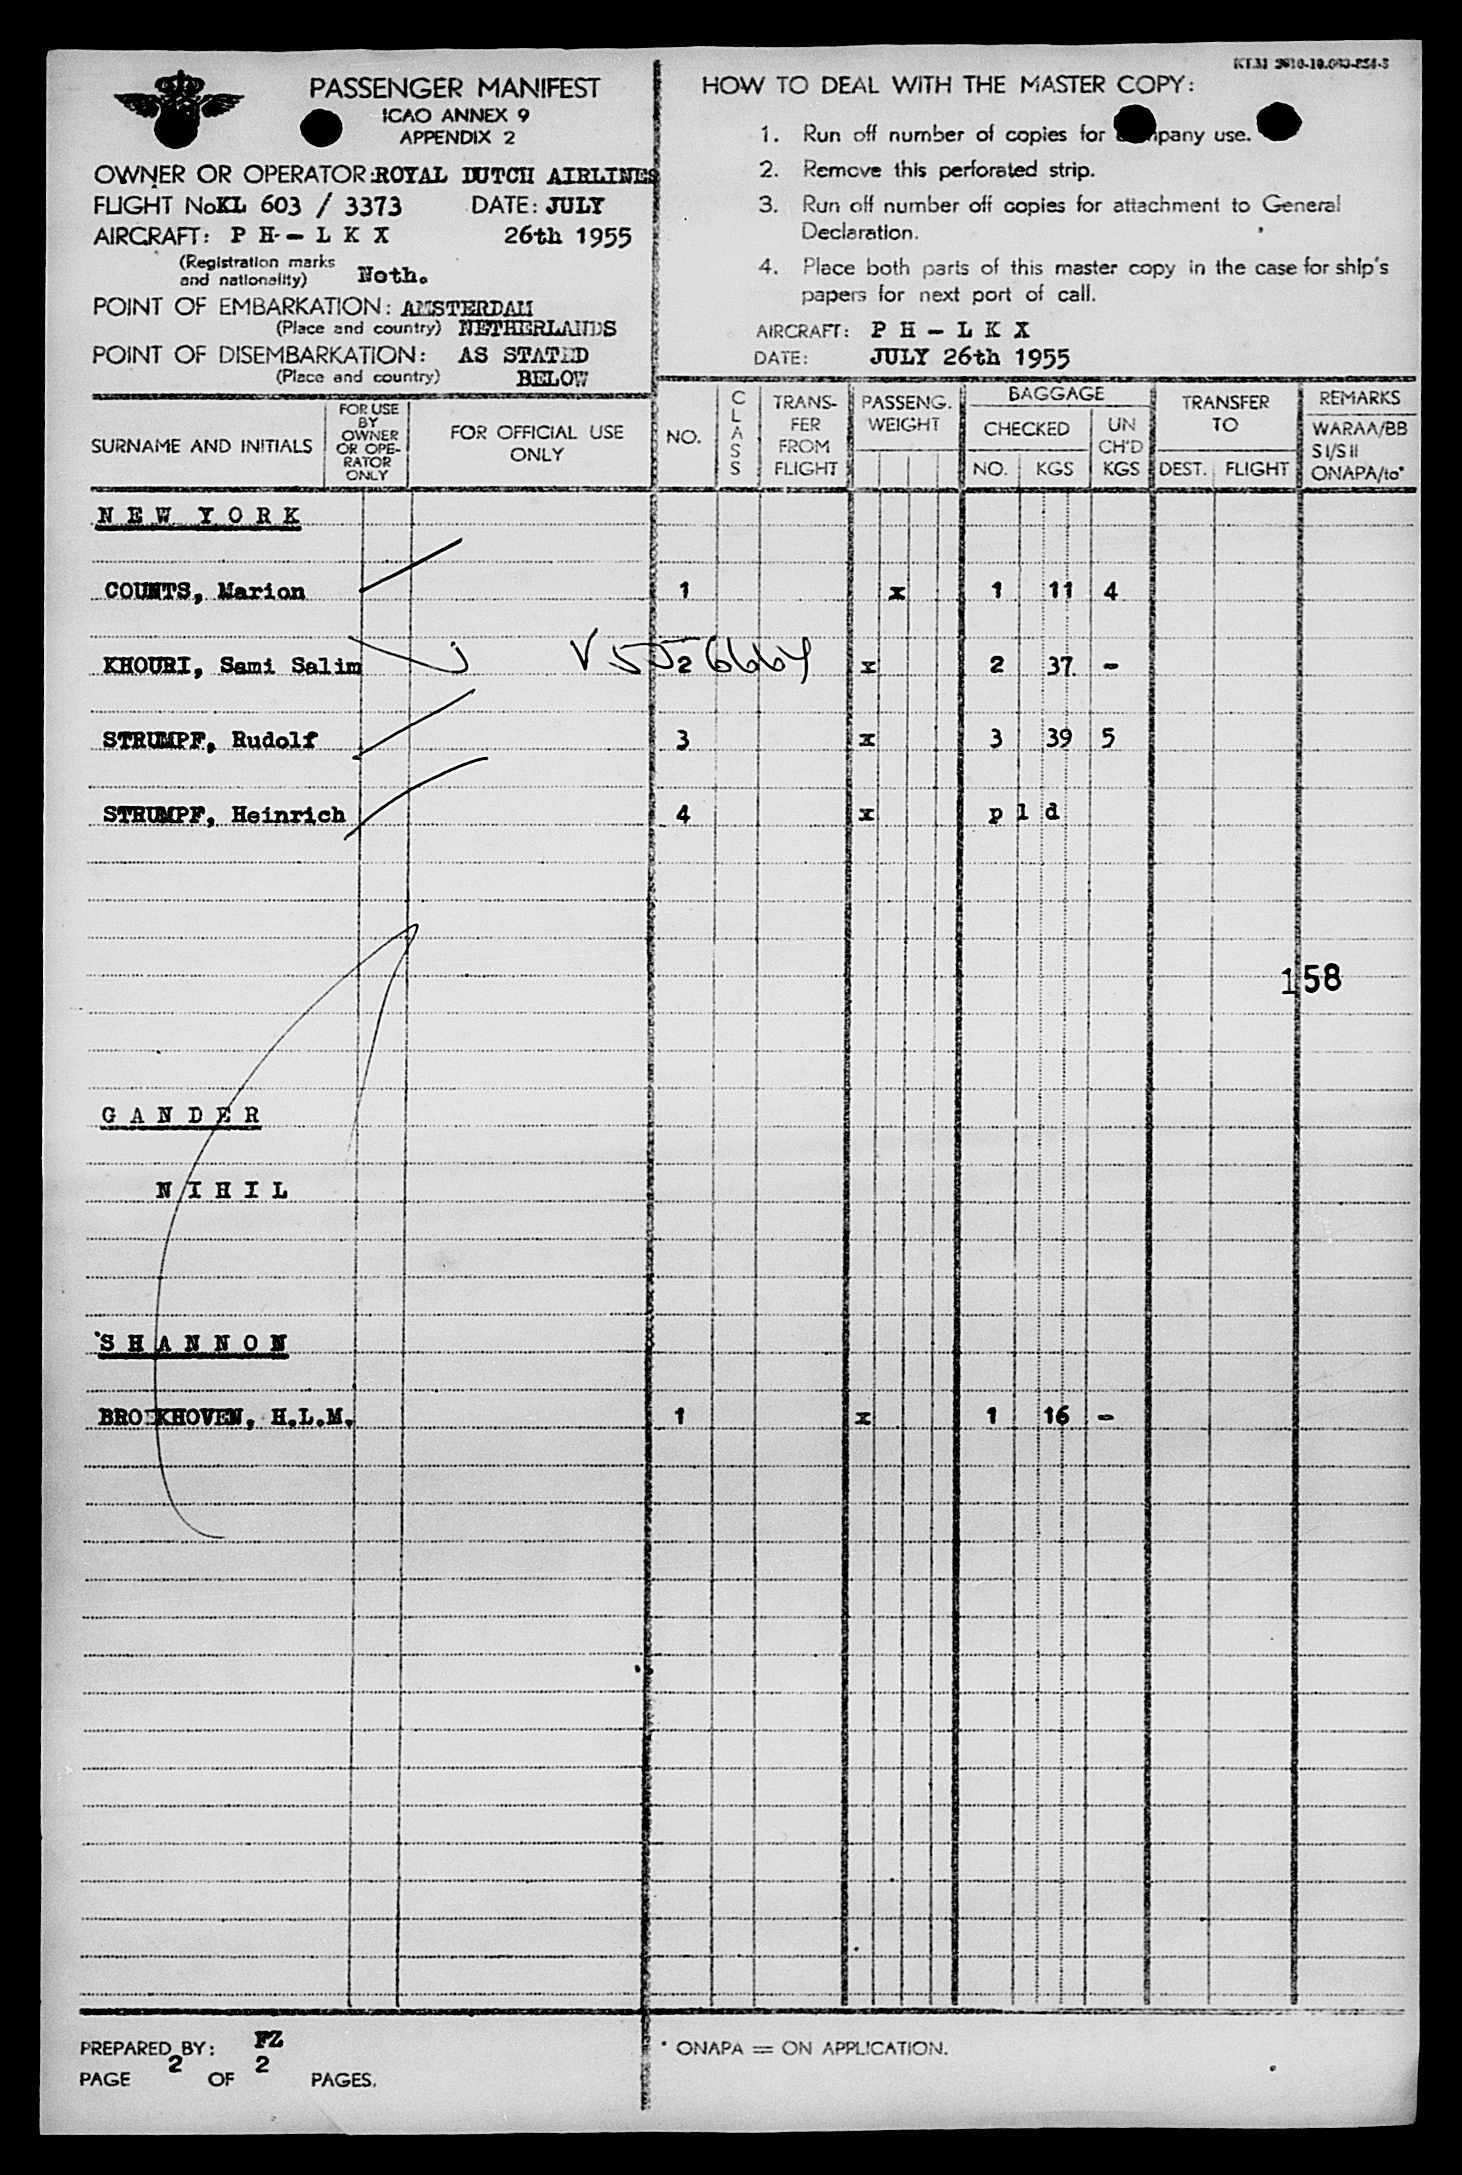 KLM
PASSENGER MANIFEST
ICAO ANNEX 9
APPENDIX 2
OWNER OR OPERATOR: ROYAL DUTCH AIRLINES
FLIGHT No KL 603 / 3373 DATE: JULY
AIRCRAFT: P H - L K X 26th 1955
(Registration marks
and nationality) Neth.
POINT OF EMBARKATION: AMSTERDAM
(Place and country) NETHERLANDS
POINT OF DISEMBARKATION: AS STATED
(Place and country) BELOW
HOW TO DEAL WITH THE MASTER COPY:
1. Run off number of copies for company use.
2. Remove this perforated strip.
3. Run off number off copies for attachment to General
Declaration.
4. Place both parts of this master copy in the case for ship's
papers for next port of call.
AIRCRAFT: P H - L K X
DATE: JULY 26th 1955
SURNAME AND INITIALS
FOR USE
BY
OWNER
OR OPE-
RATOR
ONLY
FOR OFFICIAL USE
ONLY
NO.
CLASS
TRANS-
FER
FROM
FLIGHT
PASSENG.
WEIGHT
BAGGAGE
CHECKED
NO. KGS
UN
CH'D
KGS
TRANSFER
TO
DEST. FLIGHT
REMARKS
WARAA/BB
SI/SII
ONAPA/to*
NEW YORK
COUNTS, Marion 1 x 1 11 4
KHOURI, Sami Salim V 556664 2 x 2 37 -
STRUMPF, Rudolf 3 x 3 39 5
STRUMPF, Heinrich 4 x p l d
158
GANDER
NIHIL
SHANNON
BROEKHOVEN, H.L.M. 1 x 1 16 -
PREPARED BY: FZ
PAGE 2 OF 2 PAGES.
* ONAPA = ON APPLICATION.